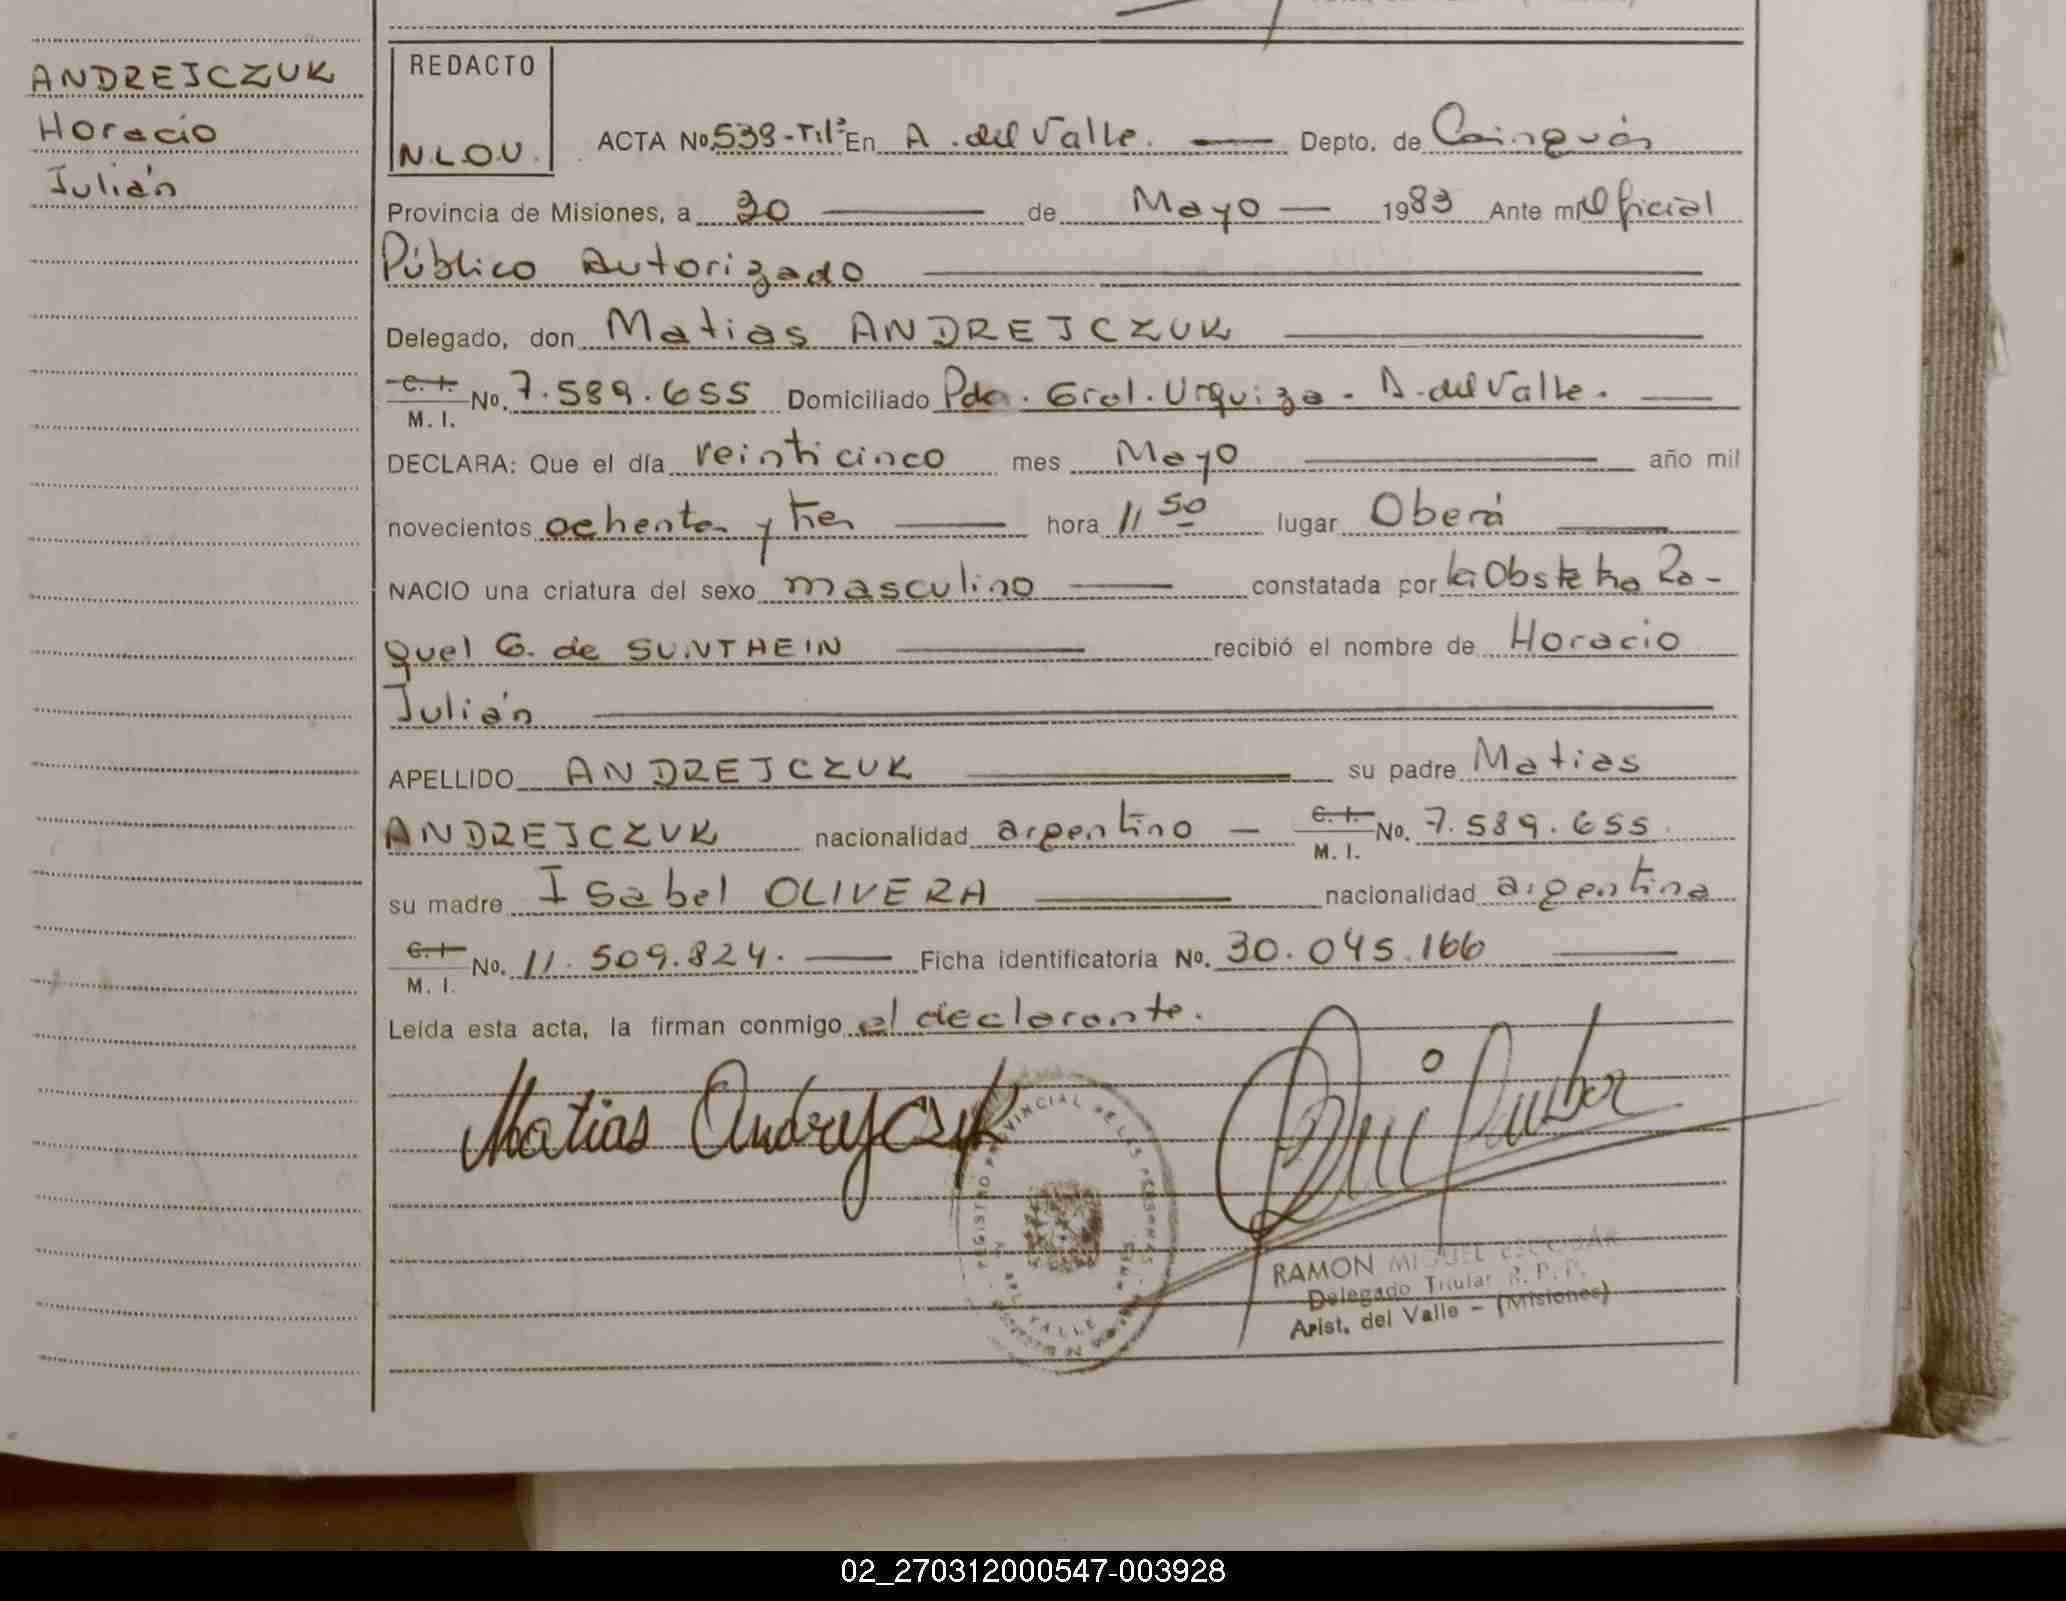 ANDREJCZUK
Horacio
Julián
REDACTO
N.L.O.V.
ACTA No. 538-T.1º En A. del Valle. Depto. de Cainguás
Provincia de Misiones, a 30 de Mayo 1983 Ante mi Oficial
Público Autorizado
Delegado, don Matias ANDREJCZUK
C. I. M. I. No. 7.589.655 Domiciliado Pda. Gral. Urquiza - A. del Valle.
DECLARA: Que el día veinticinco mes Mayo año mil
novecientos ochenta y tres hora 11 50 lugar Oberá
NACIO una criatura del sexo masculino constatada por la Obstetra Ra-
quel G. de SUNTHEIN recibió el nombre de Horacio
Julián
APELLIDO ANDREJCZUK su padre Matias
ANDREJCZUK nacionalidad argentino C. I. M. I. No. 7.589.655
su madre Isabel OLIVERA nacionalidad argentina
C. I. M. I. No. 11.509.824. Ficha identificatoria No. 30.045.166
Leída esta acta, la firman conmigo el declarante.
Matias Andrejczuk
REGISTRO PROVINCIAL DE LAS PERSONAS
DEL VALLE
RAMON MIGUEL ESCOBAR
Delegado Titular R. P. P.
Arist. del Valle - (Misiones)
02_270312000547-003928